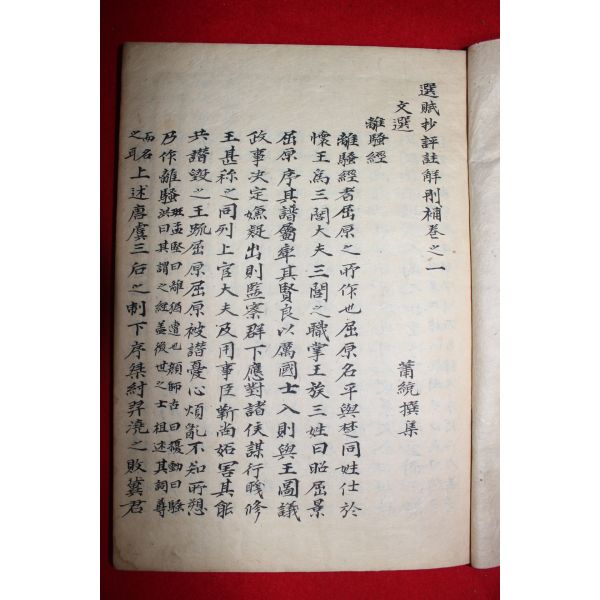 選賦抄評註解刪補卷之一
文選 蕭統撰集
離騷經
離騷經者屈原之所作也屈原名平與楚同姓仕於
懷王爲三閭大夫三閭之職掌王族三姓曰昭屈景
屈原序其譜屬率其賢良以厲國士入則與王圖議
政事決定嫌疑出則監察群下應對諸侯謀行職修
王甚珍之同列上官大夫及用事臣靳尚妬害其能
共譖毀之王疏屈原屈原被譖憂心煩亂不知所愬
乃作離騷班孟堅曰離猶遭也顔師古曰擾動曰騷
洪曰其謂之經盖後世之士祖述其詞尊
而名之耳上述唐虞三后之制下序桀紂羿澆之敗冀君